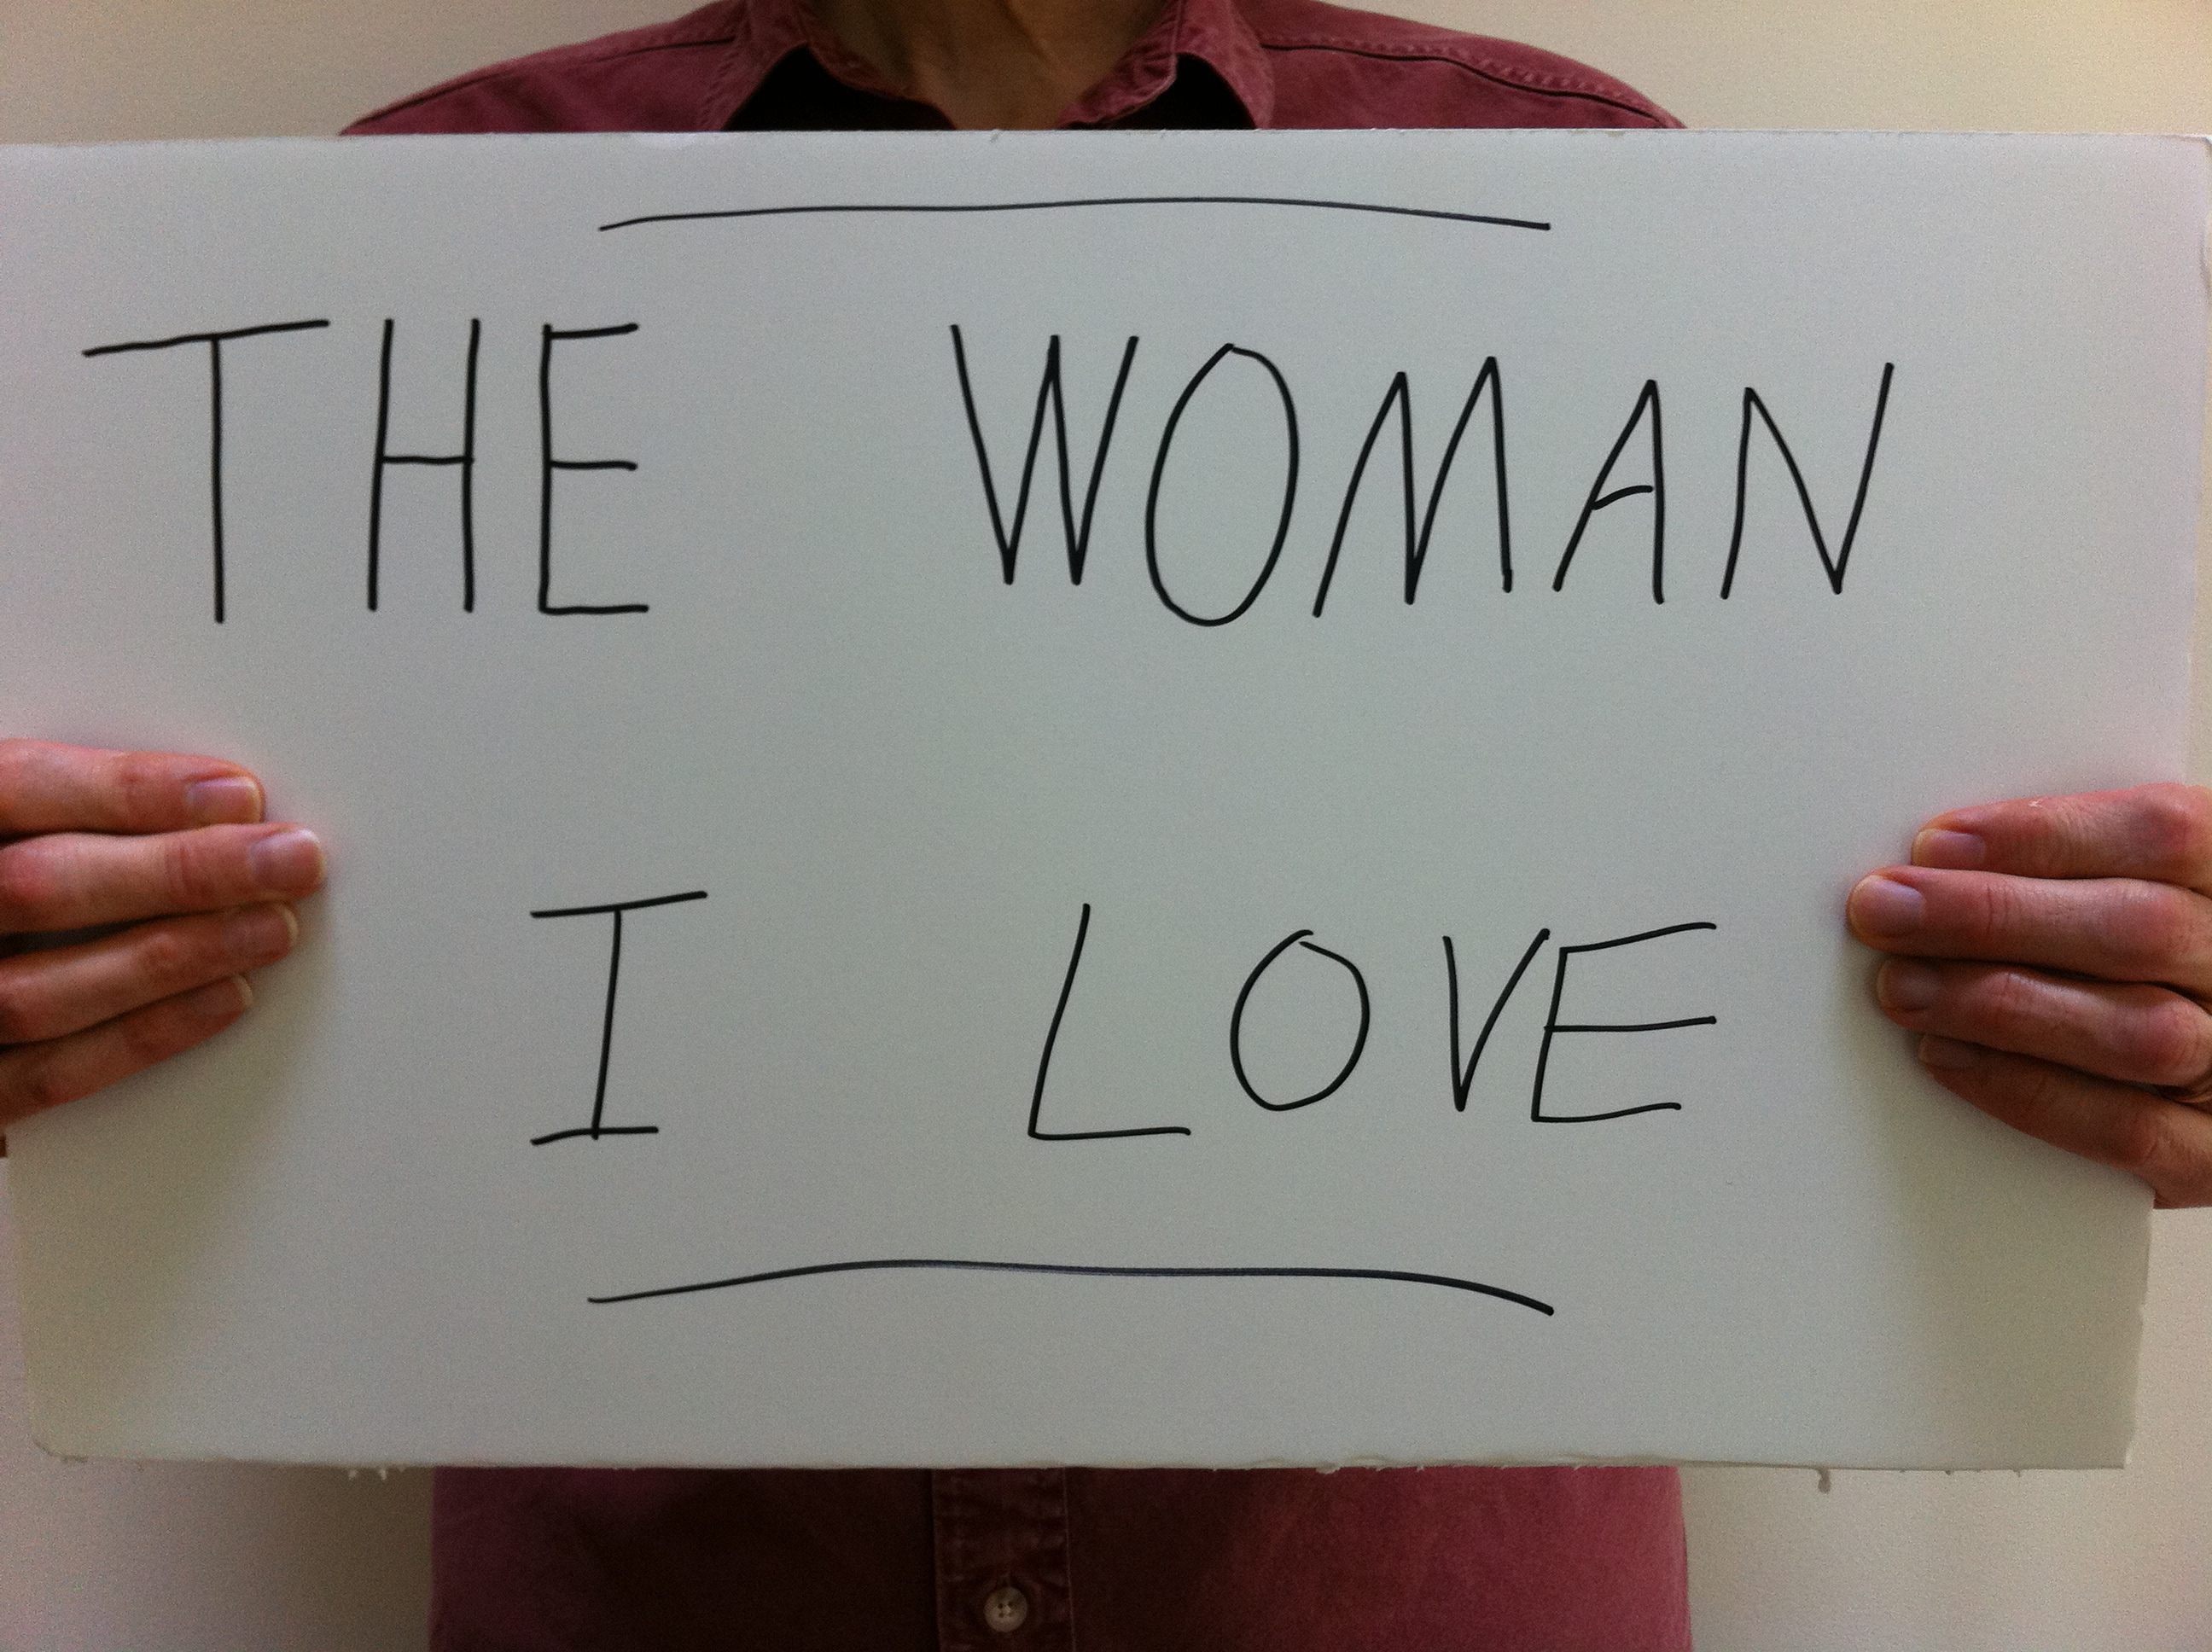 THE WOMAN
I LOVE